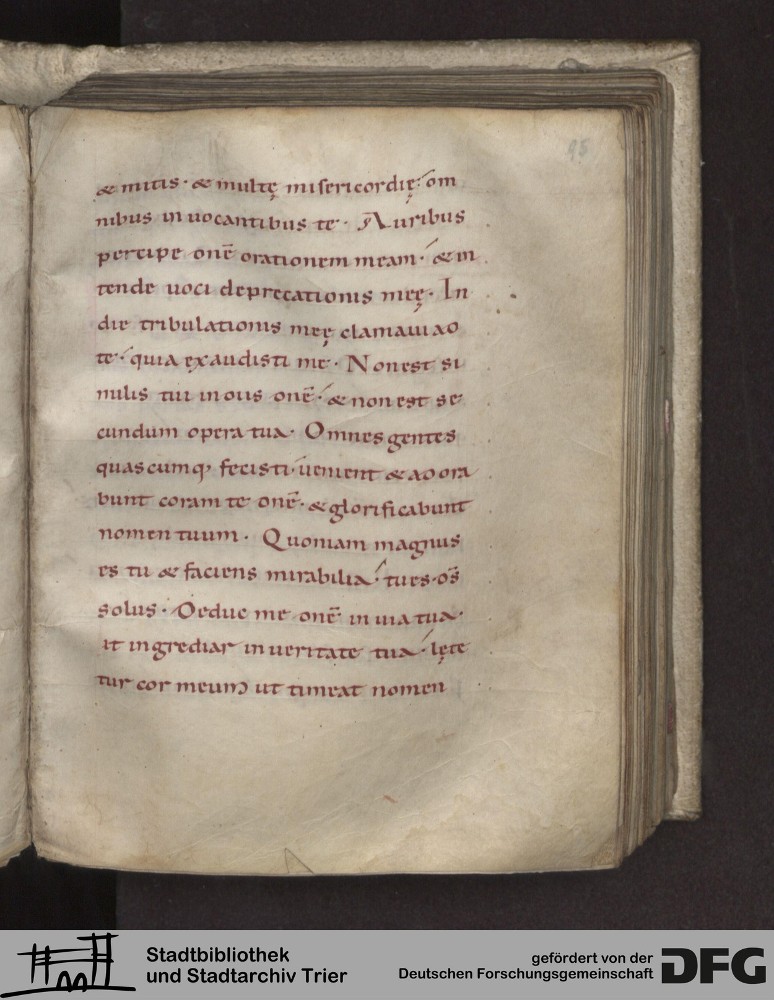 95
& mitis · & multę misericordię: om
nibus inuocantibus te · Auribus
percipe dnē orationem meam · & in
tende uoci deprecationis meę · In
die tribulationis meę clamaui ad
te · quia exaudisti me · Non est si
milis tui in diis dnē · & non est se
cundum opera tua · Omnes gentes
quascumq; fecisti · uenient & adora
bunt coram te dnē · & glorificabunt
nomen tuum · Quoniam magnus
es tu & faciens mirabilia · tu es · ds̄
solus · Deduc me dnē in uia tua ·
it ingrediar in ueritate tua · lęte
tur cor meum ut timeat nomen
Stadtbibliothek
und Stadtarchiv Trier
gefördert von der
Deutschen Forschungsgemeinschaft
DFG